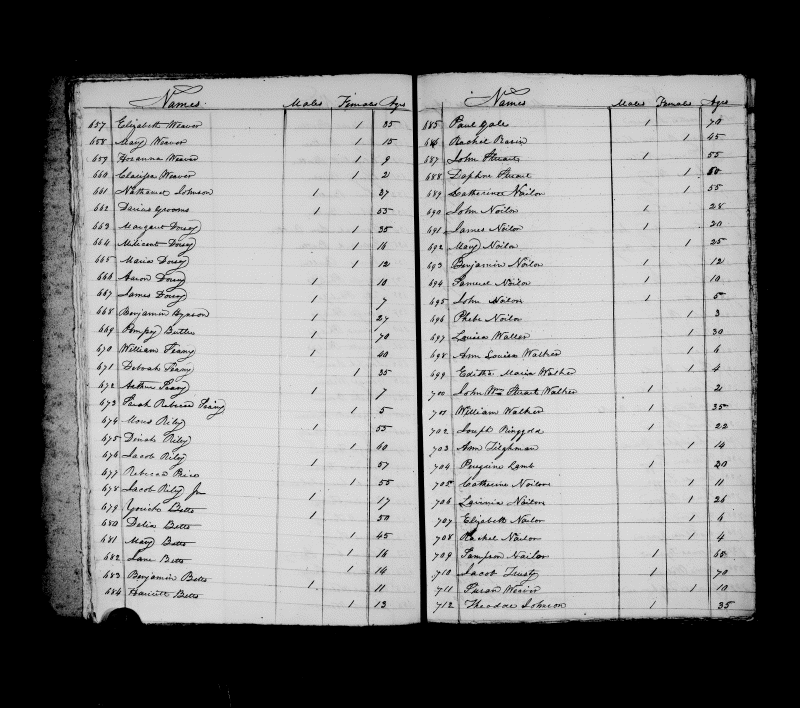 Names. Males Females Ages
657 Elizabeth Weaver 1 35
658 Mary Weaver 1 15
659 Hosanna Weaver 1 9
660 Clarissa Weaver 1 2
661 Nathaniel Johnson 1 37
662 Darius Grooms 1 55
663 Margaret Dorsey 1 35
664 Milicent Dorsey 1 16
665 Maria Dorsey 1 12
666 Aaron Dorsey 1 10
667 James Dorsey 1 7
668 Benjamin Hynson 1 27
669 Pompey Butler 1 70
670 William Teany 1 40
671 Deborah Teany 1 35
672 Arthur Teany 1 7
673 Sarah Rebecca Teany 1 5
674 Moses Riley 1 55
675 Dinah Riley 1 60
676 Jacob Riley 1 57
677 Rebecca Price 1 55
678 Jacob Riley Jr 1 17
679 Yorick Betts 1 50
680 Delia Betts 1 45
681 Mary Betts 1 16
682 Jane Betts 1 14
683 Benjamin Betts 1 11
684 Harriett Betts 1 13
Names Males Females Ages
685 Paul Gale 1 70
686 Rachel Rasin 1 45
687 John Stuart 1 55
688 Daphne Stuart 1 50
689 Catherine Noilor 1 55
690 John Noilor 1 28
691 James Noilor 1 20
692 Mary Noilor 1 25
693 Benjamin Noilor 1 12
694 Samuel Noilor 1 10
695 John Noilor 1 5
696 Phebe Noilor 1 3
697 Louisa Walker 1 30
698 Ann Louisa Walker 1 6
699 Editha Maria Walker 1 4
700 John Wm Stuart Walker 1 2
701 William Walker 1 35
702 Joseph Ringgold 1 22
703 Ann Tilghman 1 14
704 Peregrine Lamb 1 20
705 Catherine Noilor 1 11
706 Lavinia Noilor 1 26
707 Elizabeth Nailor 1 6
708 Rachel Noilor 1 4
709 Sampson Nailor 1 65
710 Jacob Trusty 1 70
711 Susan Weaver 1 10
712 Theodore Johnson 1 35